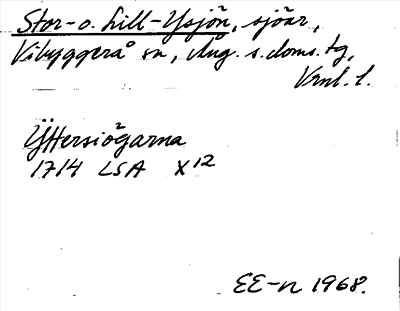 Stor- o. Lill-Ysjön, sjöar,
Vibyggerå sn, Ång. s. doms. tg,
Vrnl. l.
Ÿttersiögarna
1714 LSA X12
EE-n 1968.